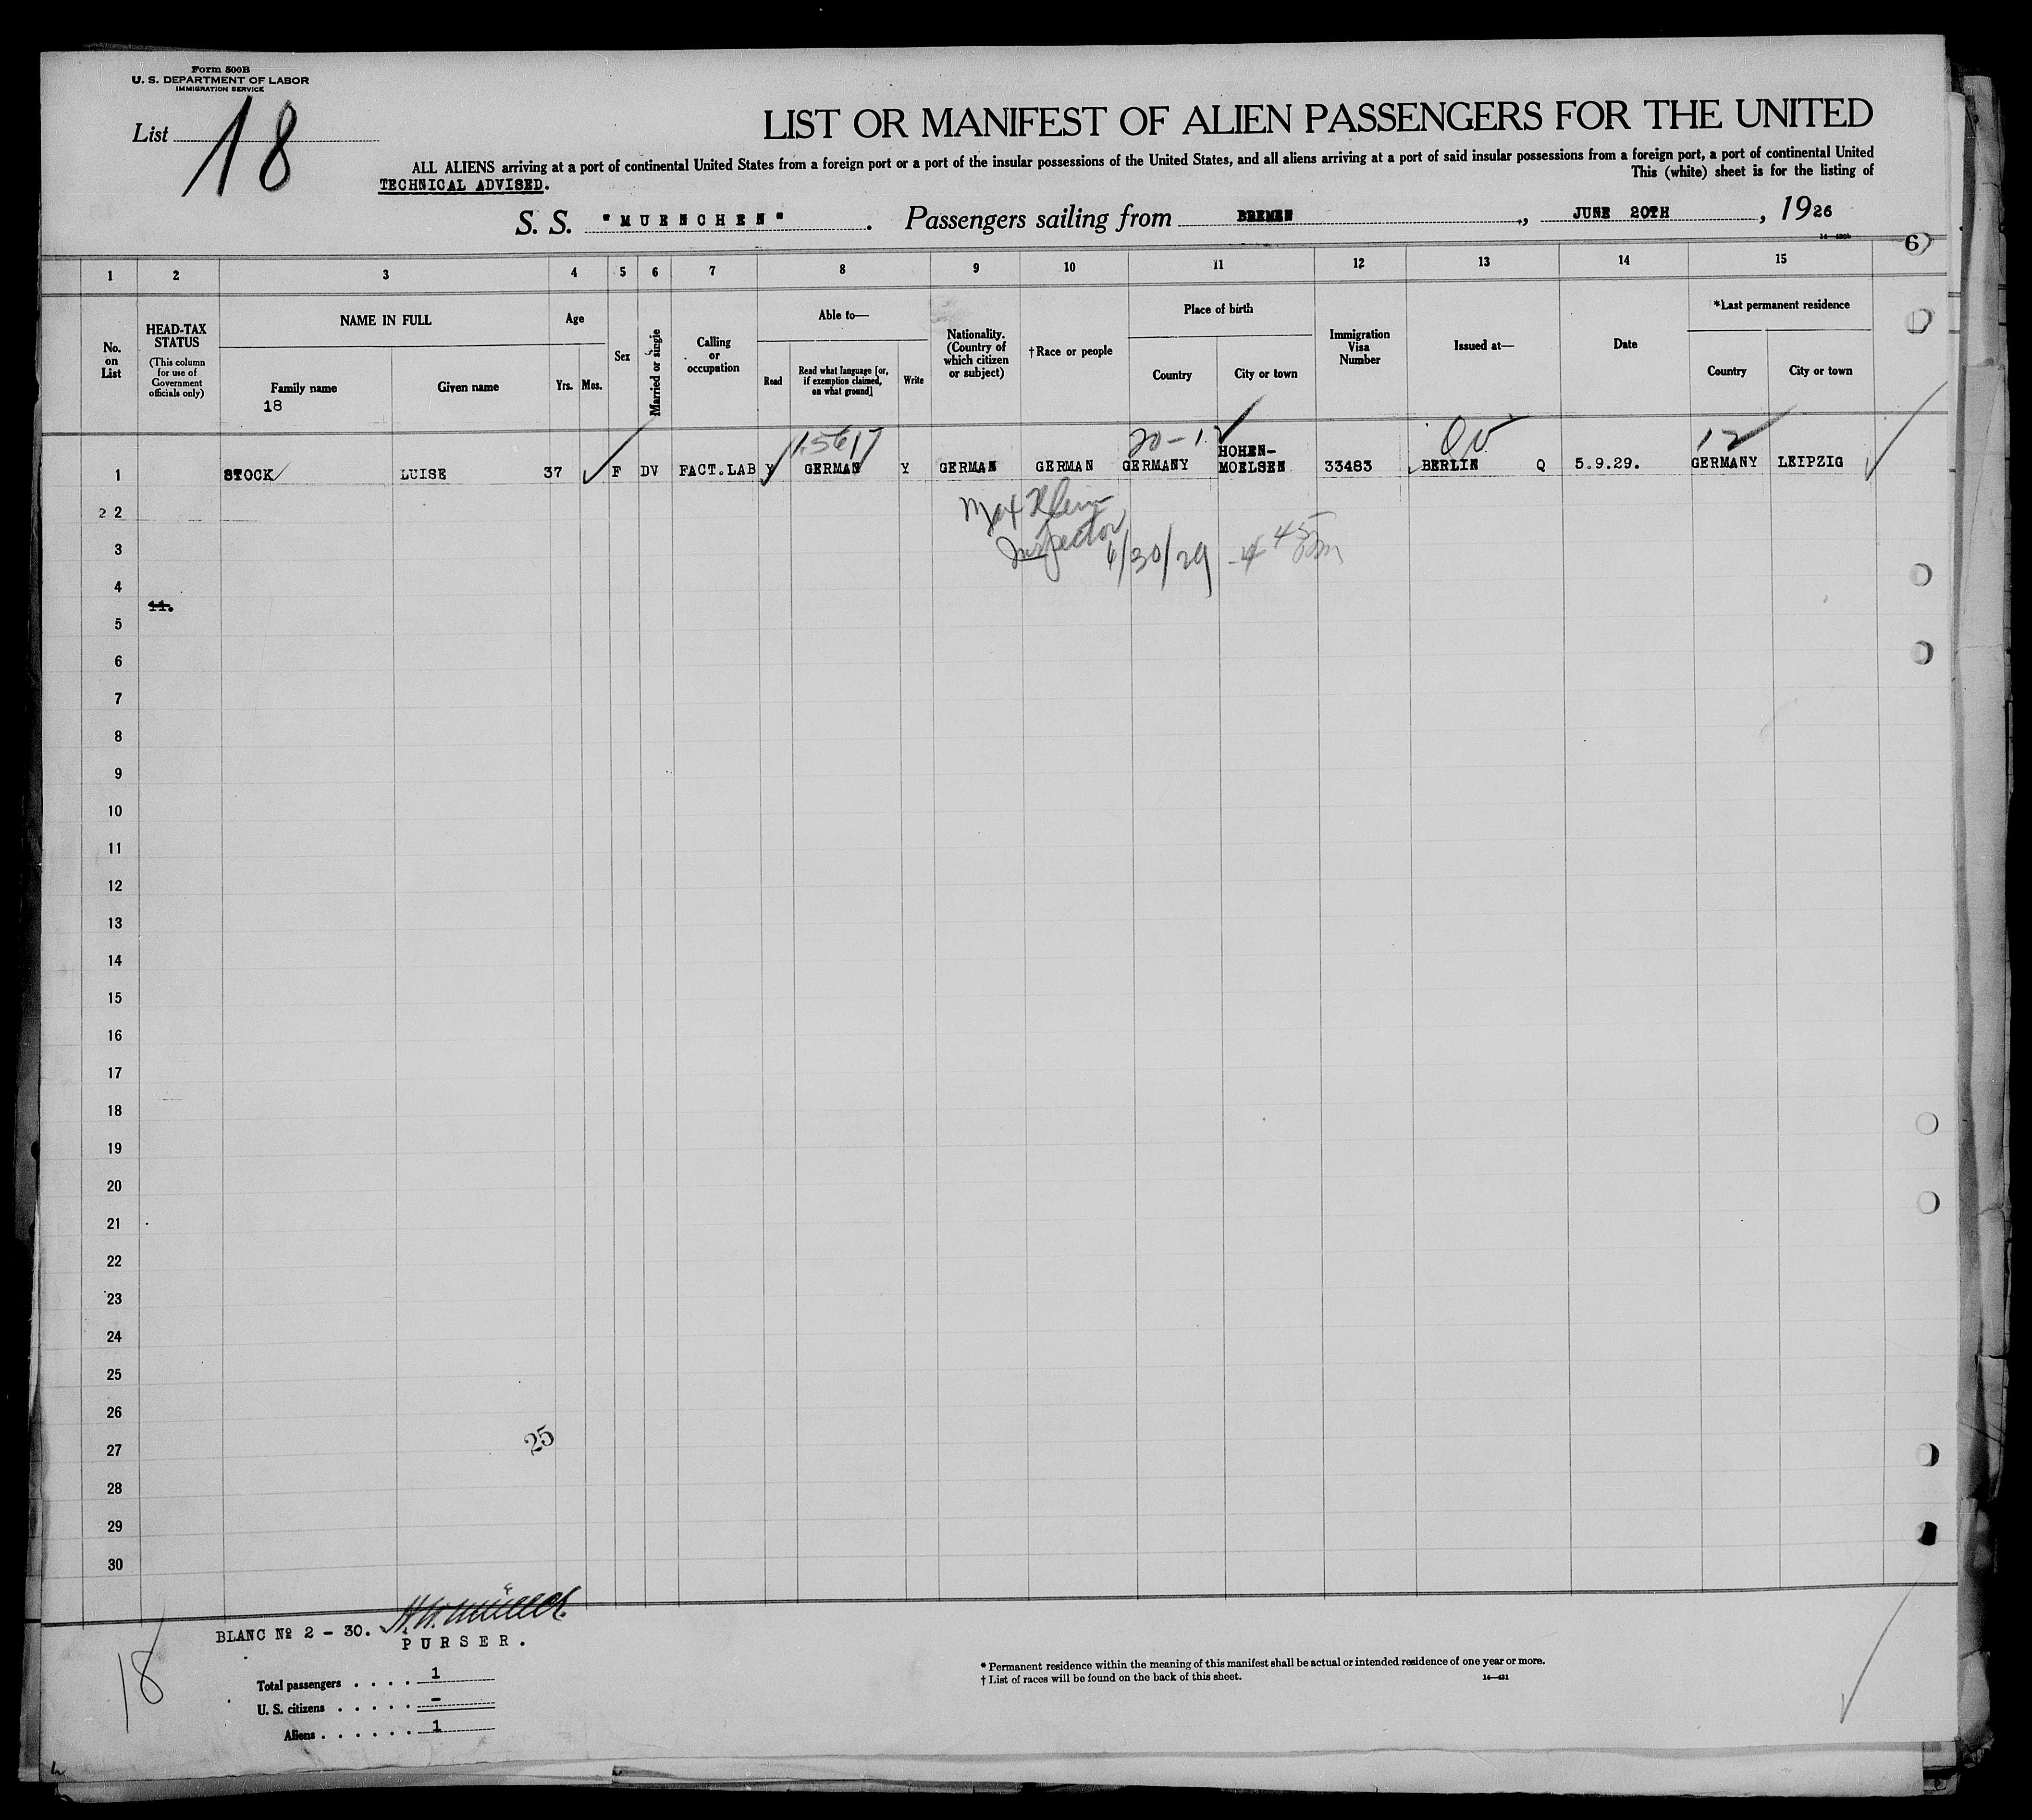 Form 500B
U. S. DEPARTMENT OF LABOR
IMMIGRATION SERVICE
List 18
LIST OR MANIFEST OF ALIEN PASSENGERS FOR THE UNITED
ALL ALIENS arriving at a port of continental United States from a foreign port or a port of the insular possessions of the United States, and all aliens arriving at a port of said insular possessions from a foreign port, a port of continental United
This (white) sheet is for the listing of
TECHNICAL ADVISED.
S. S. "MUENCHEN". Passengers sailing from BREMEN, JUNE 20TH, 1926
6
1 2 3 4 5 6 7 8 9 10 11 12 13 14 15
No. on List
HEAD-TAX STATUS
(This column for use of Government officials only)
NAME IN FULL
Family name
18
Given name
Age
Yrs. Mos.
Sex
Married or single
Calling or occupation
Able to—
Read
Read what language [or, if exemption claimed, on what ground]
Write
Nationality. (Country of which citizen or subject)
†Race or people
Place of birth
Country
City or town
Immigration Visa Number
Issued at—
Date
*Last permanent residence
Country
City or town
15617 20-1 QV 12
1 STOCK LUISE 37 F DV FACT.LAB Y GERMAN Y GERMAN GERMAN GERMANY HOHEN-MOELSEN 33483 BERLIN Q 5.9.29. GERMANY LEIPZIG
2 2
Max Klein
Inspector
6/30/29
3
4
11.
5
6
7
8
9
10
11
12
13
14
15
16
17
18
19
20
21
22
23
24
25
26
27
25
28
29
30
BLANC № 2 - 30.
H. W. Müller
PURSER.
18
Total passengers . . . . 1
U. S. citizens . . . . . -
Aliens . . . . . . 1
* Permanent residence within the meaning of this manifest shall be actual or intended residence of one year or more.
† List of races will be found on the back of this sheet.
14—431